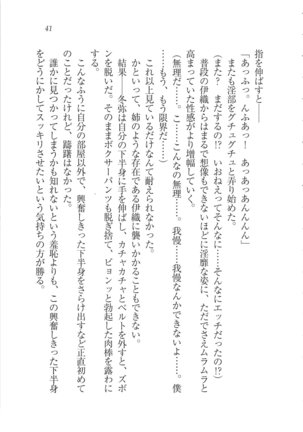 41
指を伸ばすと――
「あっふっ。んふあっ！　あっあっあんんんん」
またも淫部をグチュグチュと弄り始めた。
(また？　まだするの!?　いおねえってそんなに……そんなにエッチだったの!?)
普段の伊織からはまるで想像もできないほどに淫靡な姿に、ただでさえムラムラと
高まっていた性感がより増幅していく。
(無理だ……。こ……こんなの無理……。我慢……我慢なんかできないよ……。僕
……もう、もう限界だ……)
これ以上見ているだけなんて耐えられなかった。
かといって、姉のような存在である伊織に襲いかかることもできない。
結果――冬弥は自分の下半身に手を伸ばし、カチャカチャとベルトを外すと、ズボ
ンを脱いだ。そのままボクサーパンツも脱ぎ捨て、ビョンッと勃起した肉棒を露わに
する。
こんなふうに自分の部屋以外で、興奮しきった下半身をさらけ出すなど正直初めて
のことだったけれど、躊躇はなかった。
誰かに見つかってしまうかも知れないという羞恥よりも、この興奮しきった下半身
をどうにかしてスッキリさせたいという気持ちの方が勝る。